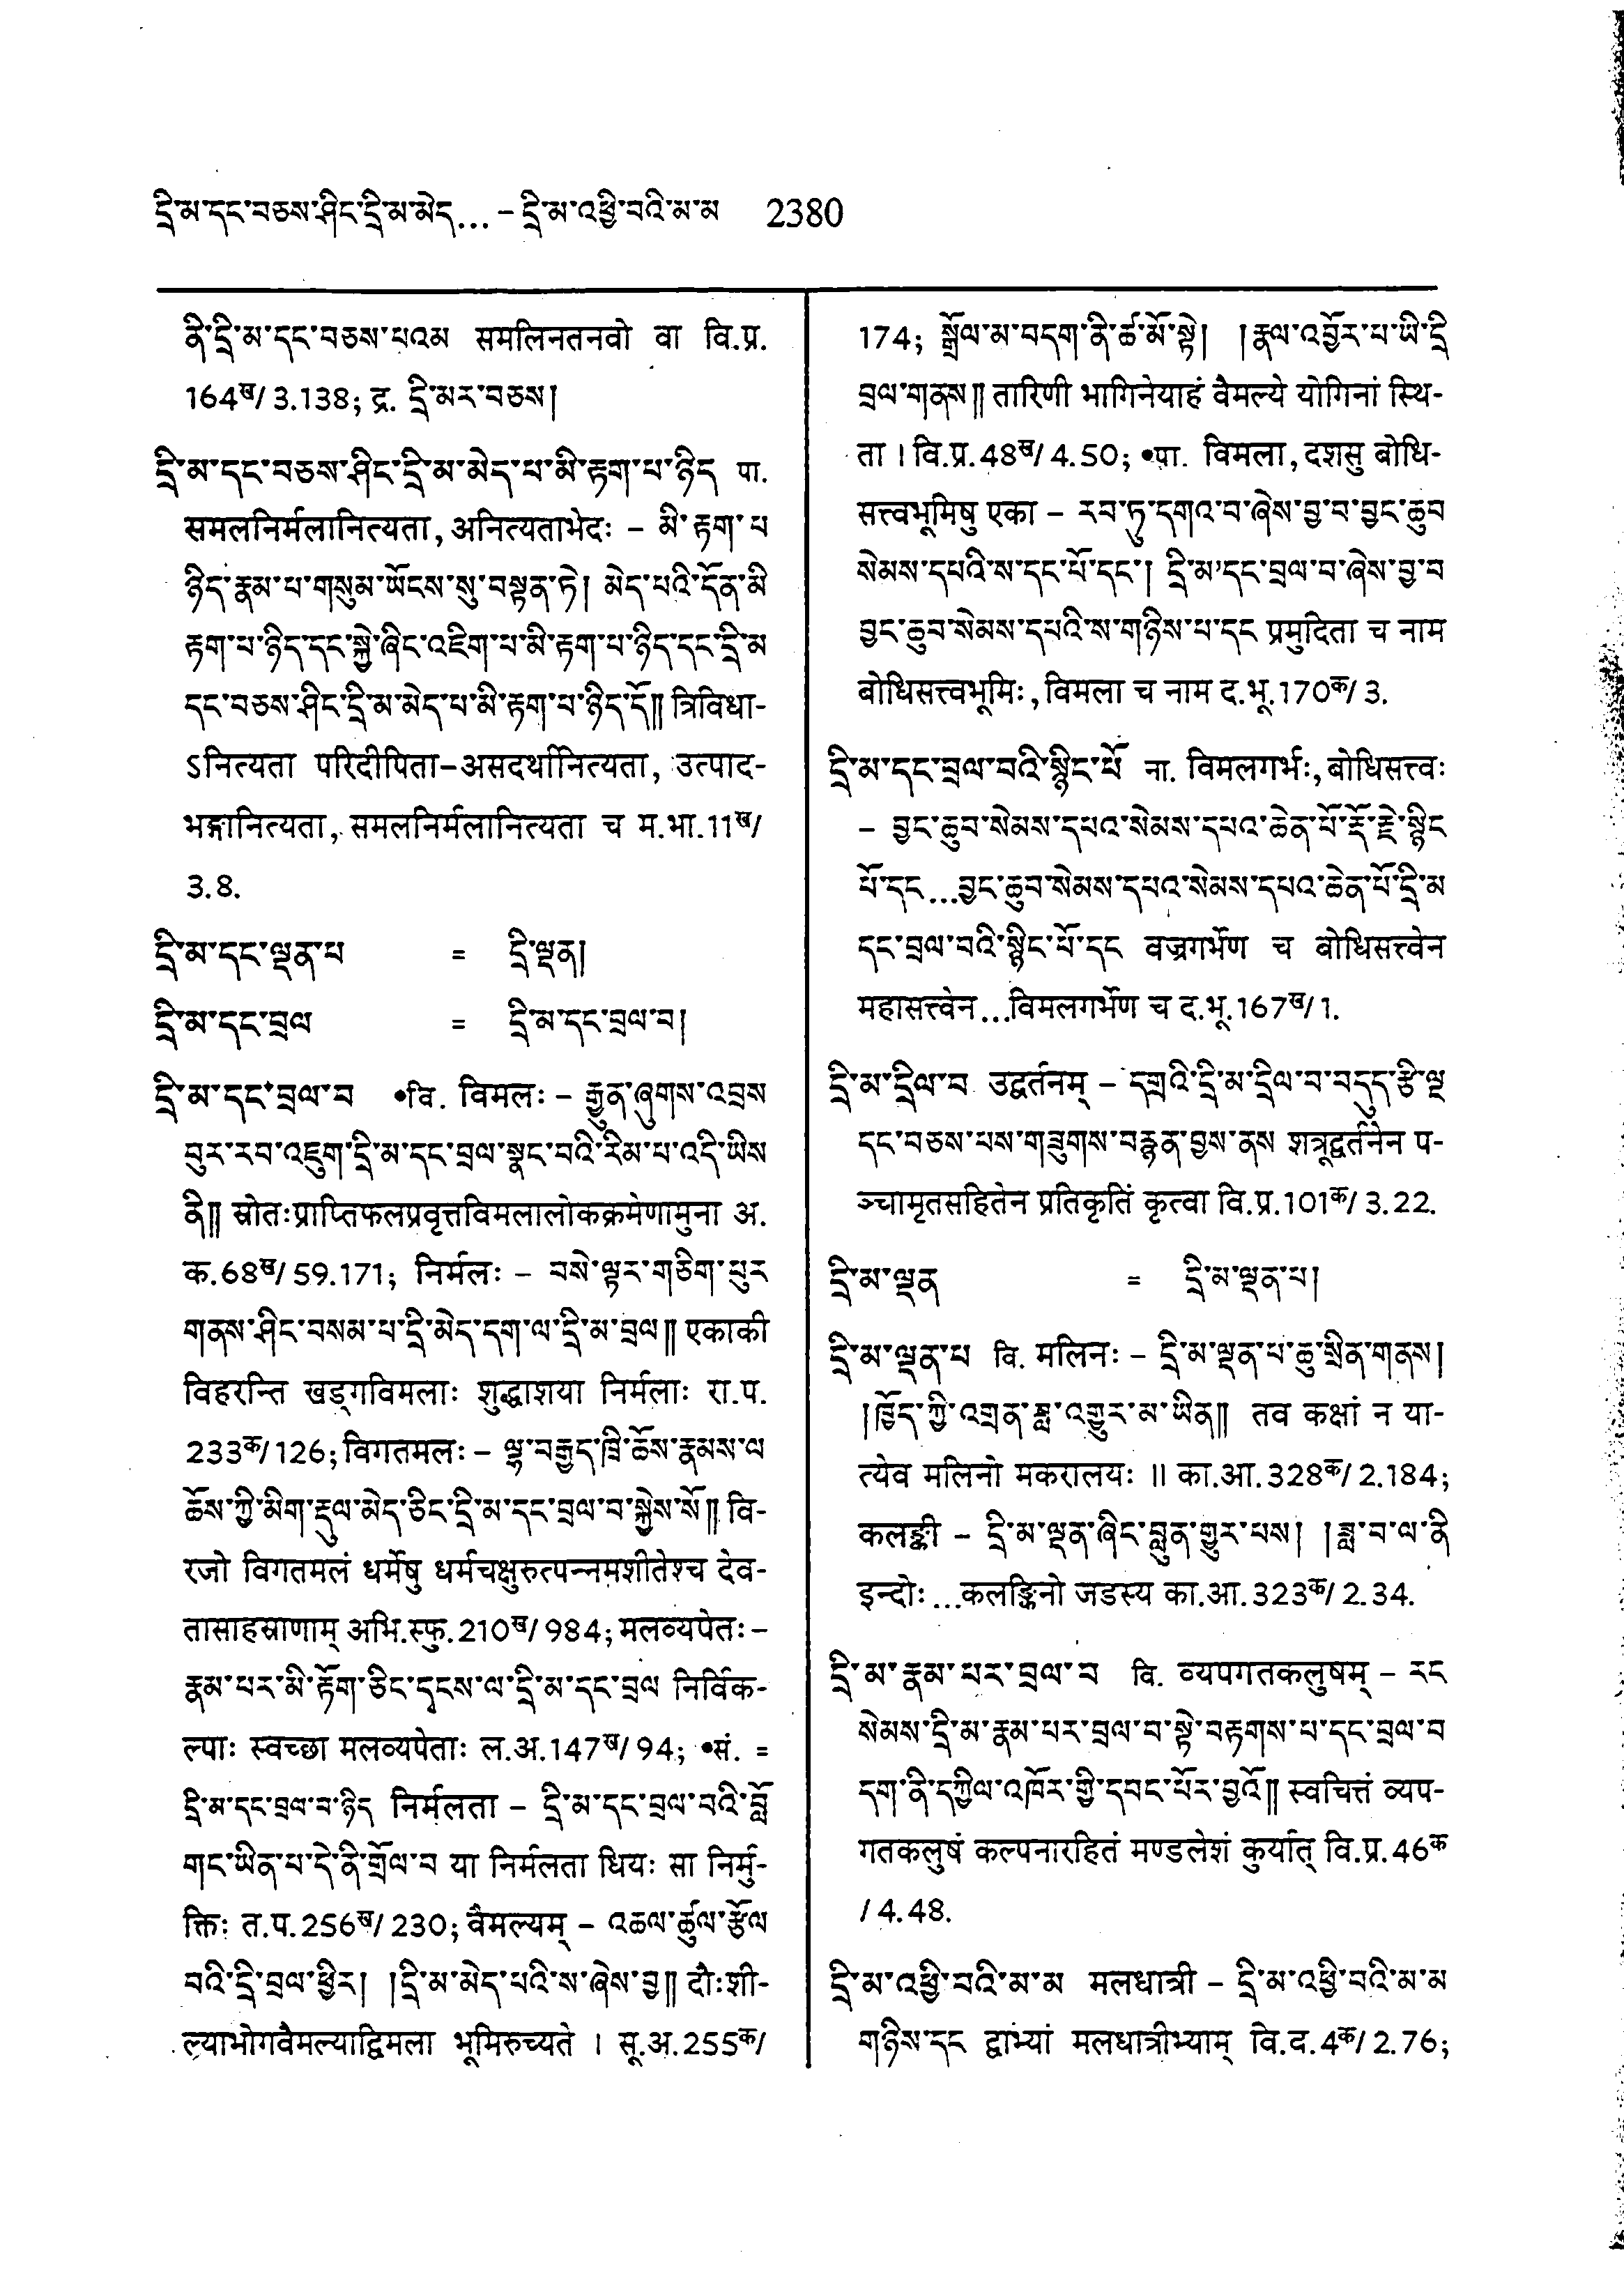 དྲི་མ་དང་བཅས་ཤིང་དྲི་མ་མེད... – དྲི་མ་འཕྱི་བའི་མ་མ 2380
ནི་དྲི་མ་དང་བཅས་པའམ समलिनतनवो वा वि.प्र.
164ख/3.138; द्र. དྲི་མར་བཅས།
དྲི་མ་དང་བཅས་ཤིང་དྲི་མ་མེད་པ་མི་རྟག་པ་ཉིད पा.
समलनिर्मलानित्यता, अनित्यताभेदः – མི་རྟག་པ
ཉིད་རྣམ་པ་གསུམ་ཡོངས་སུ་བསྟན་ཏེ། མེད་པའི་དོན་མི
རྟག་པ་ཉིད་དང་སྐྱེ་ཞིང་འཇིག་པ་མི་རྟག་པ་ཉིད་དང་དྲི་མ
དང་བཅས་ཤིང་དྲི་མ་མེད་པ་མི་རྟག་པ་ཉིད་དོ༎ त्रिविधा-
ऽनित्यता परिदीपिता–असदर्थानित्यता, उत्पाद-
भङ्गानित्यता, समलनिर्मलानित्यता च म.भा.11ख/
3.8.
དྲི་མ་དང་ལྡན་པ = དྲི་ལྡན།
དྲི་མ་དང་བྲལ = དྲི་མ་དང་བྲལ་བ།
དྲི་མ་དང་བྲལ་བ •वि. विमलः – རྒྱུན་ཞུགས་འབྲས
བུར་རབ་འཇུག་དྲི་མ་དང་བྲལ་སྣང་བའི་རིམ་པ་འདི་ཡིས
ནི༎ स्रोतःप्राप्तिफलप्रवृत्तविमलालोकक्रमेणामुना अ.
क.68ख/59.171; निर्मलः – བསེ་ལྟར་གཅིག་པུར
གནས་ཤིང་བསམ་པ་དྲི་མེད་དག་ལ་དྲི་མ་བྲལ༎ एकाकी
विहरन्ति खड्गविमलाः शुद्धाशया निर्मलाः रा.प.
233क/126; विगतमलः – ལྷ་བརྒྱད་ཁྲི་ཆོས་རྣམས་ལ
ཆོས་ཀྱི་མིག་རྡུལ་མེད་ཅིང་དྲི་མ་དང་བྲལ་བ་སྐྱེས་སོ༎ वि-
रजो विगतमलं धर्मेषु धर्मचक्षुरुत्पन्नमशीतेश्च देव-
तासाहस्राणाम् अभि.स्फु.210ख/984; मलव्यपेतः–
རྣམ་པར་མི་རྟོག་ཅིང་དྭངས་ལ་དྲི་མ་དང་བྲལ निर्विक-
ल्पाः स्वच्छा मलव्यपेताः ल.अ.147ख/94; •सं. =
དྲི་མ་དང་བྲལ་བ་ཉིད निर्मलता – དྲི་མ་དང་བྲལ་བའི་བློ
གང་ཡིན་པ་དེ་ནི་གྲོལ་བ या निर्मलता धियः सा निर्मु-
क्तिः त.प.256ख/230; वैमल्यम् – འཆལ་ཚུལ་རྩོལ
བའི་དྲི་བྲལ་ཕྱིར། །དྲི་མ་མེད་པའི་ས་ཞེས་བྱ༎ दौःशी-
ल्याभोगवैमल्याद्विमला भूमिरुच्यते । सू.अ.255क/
174; སྒྲོལ་མ་བདག་ནི་ཚ་མོ་སྟེ། །རྣལ་འབྱོར་པ་ཡི་དྲི
བྲལ་གནས༎ तारिणी भागिनेयाहं वैमल्ये योगिनां स्थि-
ता । वि.प्र.48ख/4.50; •पा. विमला, दशसु बोधि-
सत्त्वभूमिषु एका – རབ་ཏུ་དགའ་བ་ཞེས་བྱ་བ་བྱང་ཆུབ
སེམས་དཔའི་ས་དང་པོ་དང་། དྲི་མ་དང་བྲལ་བ་ཞེས་བྱ་བ
བྱང་ཆུབ་སེམས་དཔའི་ས་གཉིས་པ་དང प्रमुदिता च नाम
बोधिसत्त्वभूमिः, विमला च नाम द.भू.170क/3.
དྲི་མ་དང་བྲལ་བའི་སྙིང་པོ ना. विमलगर्भः, बोधिसत्त्वः
– བྱང་ཆུབ་སེམས་དཔའ་སེམས་དཔའ་ཆེན་པོ་རྡོ་རྗེ་སྙིང
པོ་དང...བྱང་ཆུབ་སེམས་དཔའ་སེམས་དཔའ་ཆེན་པོ་དྲི་མ
དང་བྲལ་བའི་སྙིང་པོ་དང वज्रगर्भेण च बोधिसत्त्वेन
महासत्त्वेन...विमलगर्भेण च द.भू.167ख/1.
དྲི་མ་དྲིལ་བ उद्वर्तनम् – དགྲའི་དྲི་མ་དྲིལ་བ་བདུད་རྩི་ལྔ
དང་བཅས་པས་གཟུགས་བརྙན་བྱས་ནས शत्रूद्वर्तनेन प-
ञ्चामृतसहितेन प्रतिकृतिं कृत्वा वि.प्र.101क/3.22.
དྲི་མ་ལྡན = དྲི་མ་ལྡན་པ།
དྲི་མ་ལྡན་པ वि. मलिनः – དྲི་མ་ལྡན་པ་ཆུ་སྲིན་གནས།
།ཁྱོད་ཀྱི་འགྲན་ཟླ་འགྱུར་མ་ཡིན༎ तव कक्षां न या-
त्येव मलिनो मकरालयः ॥ का.आ.328क/2.184;
कलङ्की – དྲི་མ་ལྡན་ཞིང་བླུན་གྱུར་པས། །ཟླ་བ་ལ་ནི
इन्दोः...कलङ्किनो जडस्य का.आ.323क/2.34.
དྲི་མ་རྣམ་པར་བྲལ་བ वि. व्यपगतकलुषम् – རང
སེམས་དྲི་མ་རྣམ་པར་བྲལ་བ་སྟེ་བརྟགས་པ་དང་བྲལ་བ
དག་ནི་དཀྱིལ་འཁོར་གྱི་དབང་པོར་བྱའོ༎ स्वचित्तं व्यप-
गतकलुषं कल्पनारहितं मण्डलेशं कुर्यात् वि.प्र.46क
/4.48.
དྲི་མ་འཕྱི་བའི་མ་མ मलधात्री – དྲི་མ་འཕྱི་བའི་མ་མ
གཉིས་དང द्वाभ्यां मलधात्रीभ्याम् वि.व.4क/2.76;